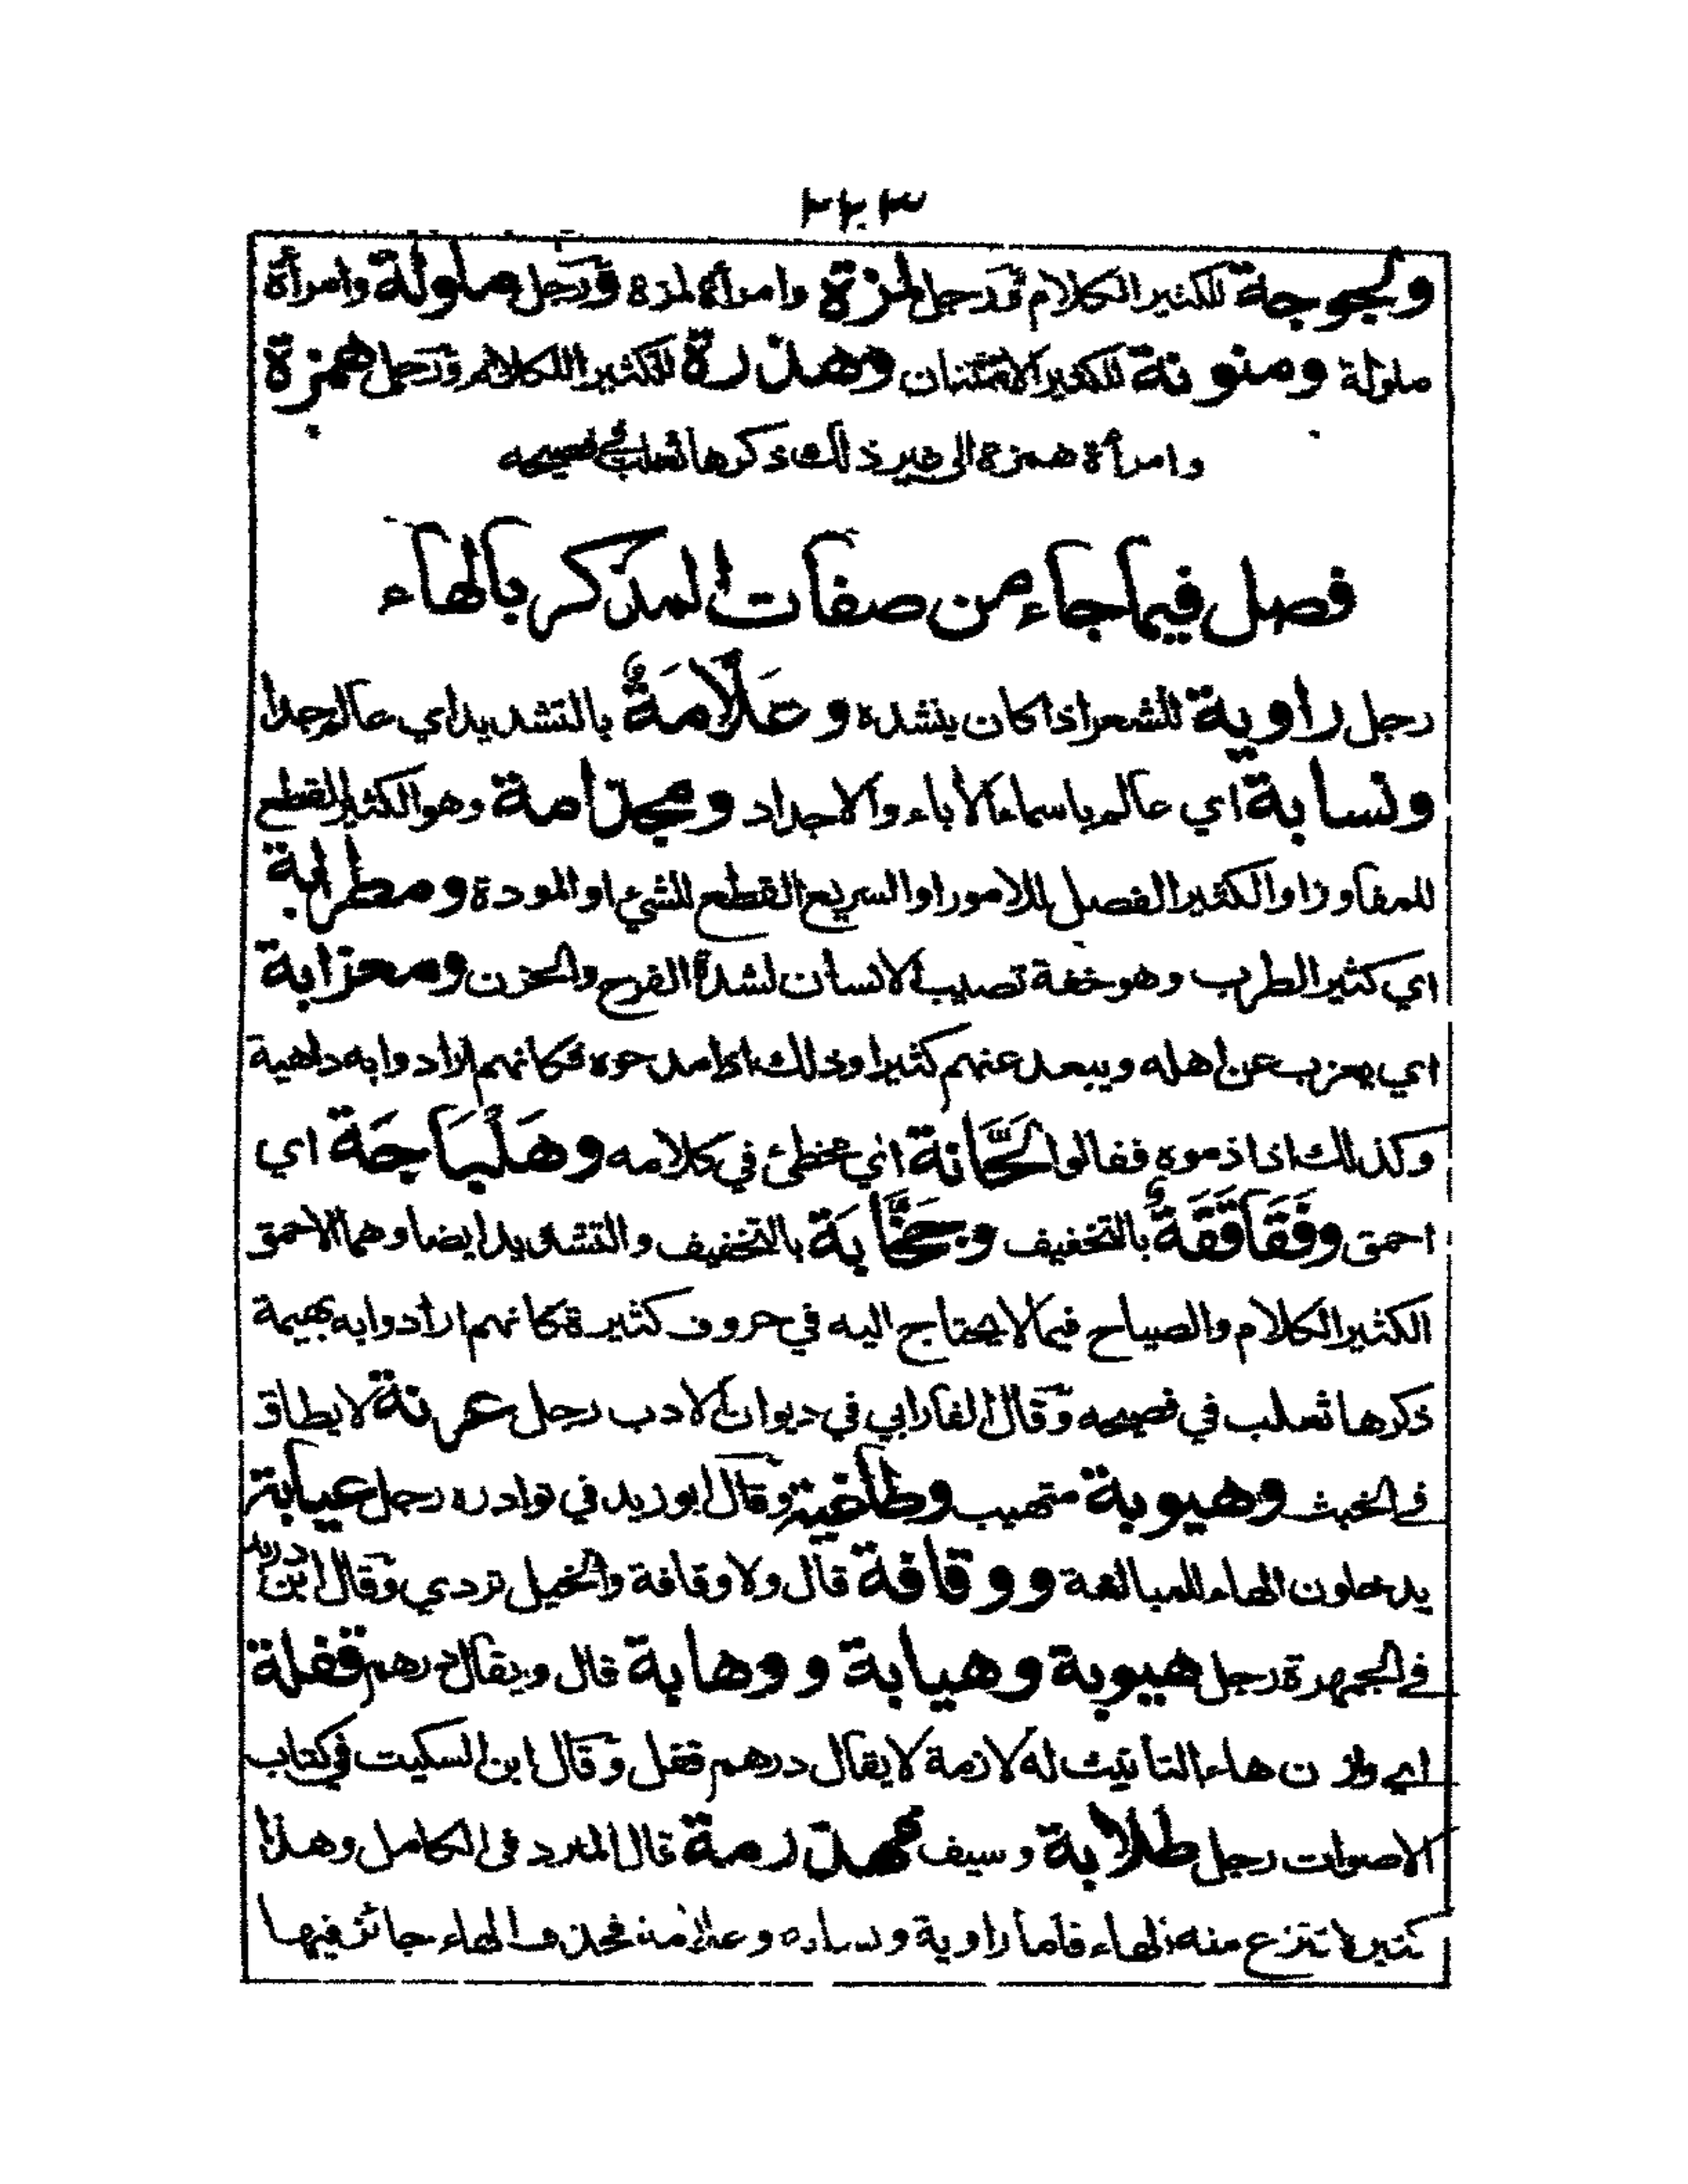 ولجوجة للكثير الكلام ورجل لمزة وامرأة لمزة ورجل ملولة وامرأة
ملولة ومنونة للكثير الامتنان وهذرة للكثير الكلام ورجل همزة
وامرأة همزة الى غير ذلك ذكرها ثعلب في فصيحه
فصل فيما جاء من صفات المذكر بالهاء
رجل راوية للشعر اذا كان ينشده وعَلّامَةٌ بالتشديد اي عالم جدا
ونسابة اي عالم باسماء الاباء والاجداد ومجذامة وهو الكثير القطع
للمفاوز او الكثير الفصل للامور او السريع القطع للشيء او المودة ومطرابة
اي كثير الطرب وهو خفة تصيب الانسان لشدة الفرح والحزن ومعزابة
اي يعزب عن اهله ويبعد عنهم كثيرا وذلك اذا مدحوه فكانهم ارادوا به داهية
وكذلك اذا ذموه فقالوا لَحَّانة اي مخطئ في كلامه وهَلْبَاجَة اي
احمق وفَقَاقَةٌ بالتخفيف وجَخَّابَة بالتخفيف والتشديد ايضا وهما الاحمق
الكثير الكلام والصياح فيما لا يحتاج اليه في حروف كثيرة كانهم ارادوا به بهيمة
ذكرها ثعلب في فصيحه وقال الفارابي في ديوان الادب رجل عرنة لا يطاق
في الخبث وهيوبة متهيب وطاغية وقال ابو زيد في نوادره رجل عيابة
يدخلون الهاء للمبالغة ووقافة قال ولا وقافة والخيل تردي وقال ابن دريد
في الجمهرة رجل هيوبة وهيابة ووهابة قال ويقال درهم قفلة
اي وازن هاء التأنيث له لازمة لا يقال درهم قفل وقال ابن السكيت في كتاب
الاصوات رجل طلابة وسيف مهذرمة قال المبرد في الكامل وهذا
كثير لا تنزع منه الهاء فاما راوية ونسابة وعلامة فحذف الهاء جائز فيها